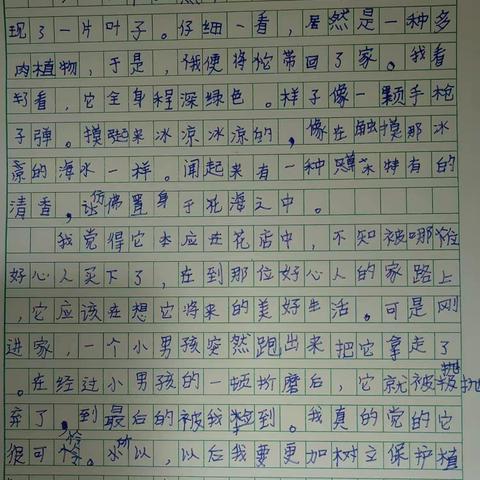 现了一片叶子。仔细一看，居然是一种多
肉植物，于是，我便将它带回了家。我看
了看，它全身程深绿色。样子像一颗手枪
子弹。摸起来冰凉冰凉的，像在触摸那冰
凉的海水一样。闻起来有一种特有的
清香，让仿佛置身于花海之中。
我觉得它本应在花店中，不知被哪位
好心人买下了，在到那位好心人的家路上
，它应该在想它将来的美好生活。可是刚
进家，一个小男孩突然跑出来把它拿走了
。在经过小男孩的一顿折磨后，它就被抛
弃了，到最后的被我拿到。我真的觉的它
很可怜。所以，以后我要更加树立保护植